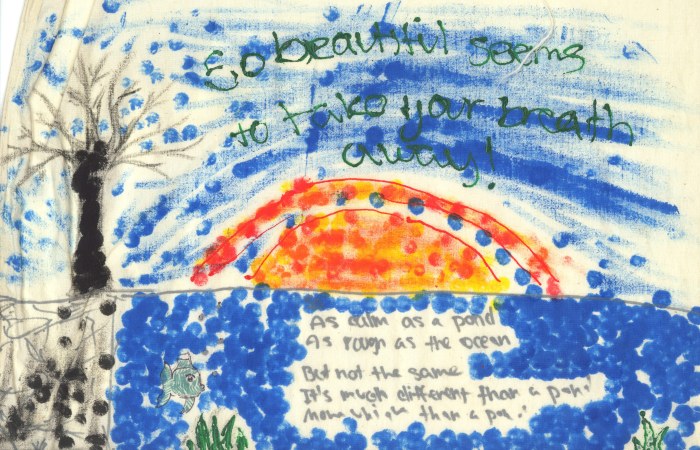 So beautiful seems
to take your breath
away!
As calm as a pond
As rough as the ocean
But not the same
It's much different than a
than a